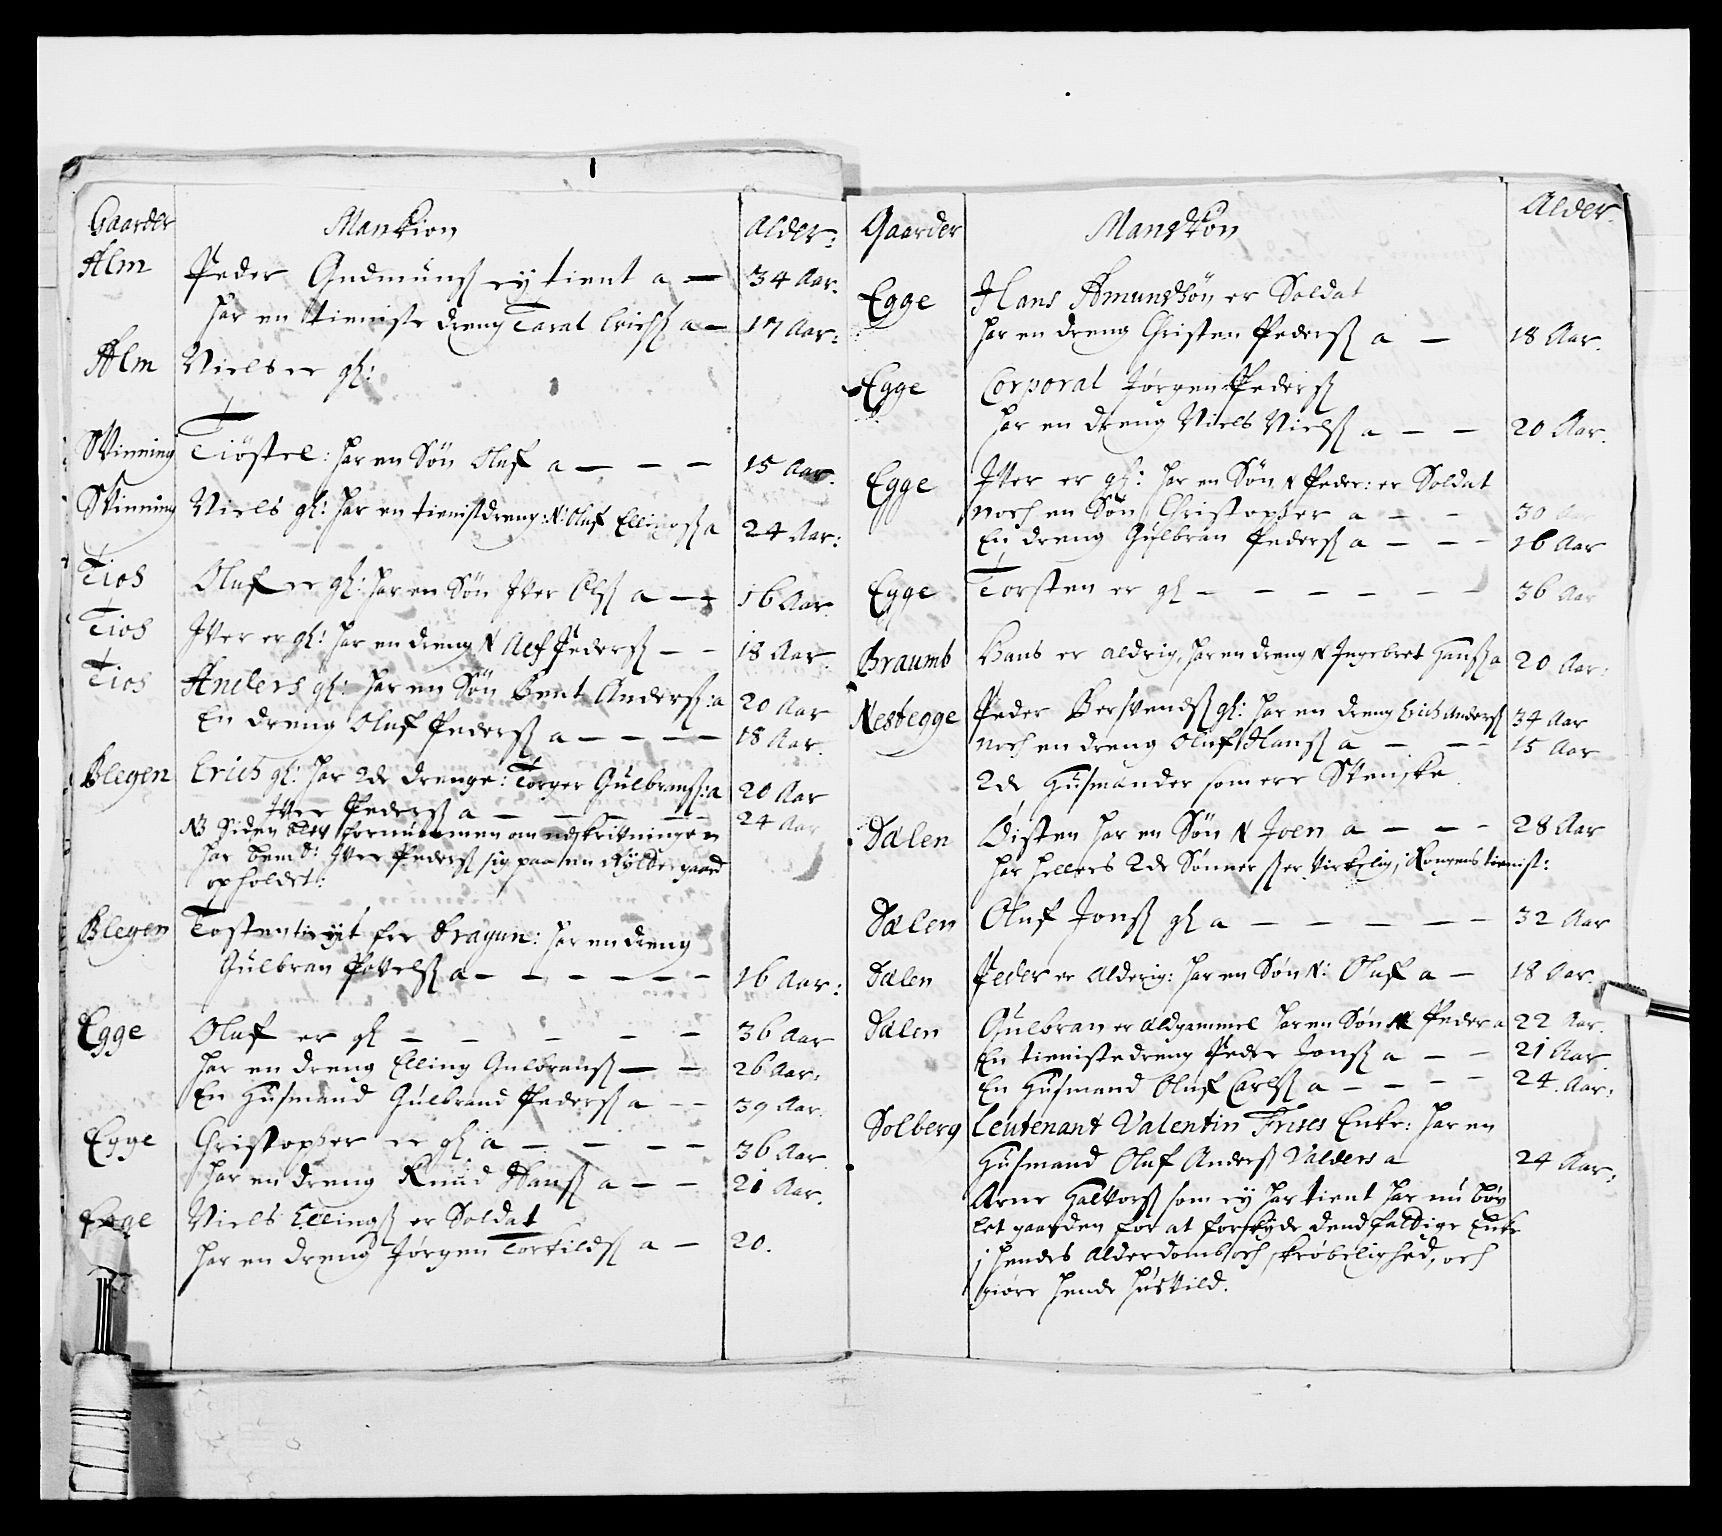 Gaarder Mankion Alder:
Alm Peder Gudmunß ey tient a — 34 Aar.
har en tieniste dreng Taral Erichß a — 17 Aar:
Alm Niels er gl:
Skinning Tiöstel: har en Søn Oluf a — — — 15 Aar.
Skinning Niels gl: har en tienistdreng: N: Oluf Ellingß a 24 Aar:
Tios Oluf er gl: har en Søn Iver Olß a — — 16 Aar
Tios Iver er gl: har en dreng N Alf Pederß — — 18 Aar.
Tios Anders gl: har en Søn Bent Anderß: a 20 Aar
En dreng Oluf Pederß a — — — — 18 Aar.
Blegen Erich gl: har 2de drenge: Torger Gulbranß: a 20 Aar
Iver Pederß a — — — — 24 Aar
NB Siden blev fornummen om udskrivningen
har bem:te Iver Pederß sig paa sin gaard
opholdet:
Blegen Tosten for Dragun: har en dreng
Gulbran Povelß a — — — — — — 16 Aar:
Egge Oluf er gl — — — — — — 36 Aar
har en dreng Elling Gulbranß — — 26 Aar:
En Husmand Gulbrand Pederß a — — 39 Aar.
Egge Christopher er gl a — — — — 36 Aar
har en dreng Knud Hanß a — — 21 Aar.
Egge Niels Ellingß er Soldat
har en dreng Jørgen Torkildß a — 20.
Gaarder Mandkøn Alder.
Egge Hans Amundsøn er Soldat
har en dreng Christen Pederß a — 18 Aar.
Egge Corporal Jørgen Pederß
har en dreng Niels Nielß a — — 20 Aar.
Egge Iver er gl: har en Søn N Peder: er Soldat
noch en Søn Christopher a — — 30 Aar
En dreng Gulbran Pederß a — — — 16 Aar
Egge Torsten er gl — — — — — — 36 Aar
Braumb Hans er aldrig, har en dreng N Ingebret Hanß a 20 Aar:
Nesbegge Peder Bersvendß gl: har en dreng Erich Anderß 34 Aar
noch en dreng Oluf Hanß a — — — 15 Aar
2de Husmænder som ere Svenske
Dalen Oisten har en Søn N Joen a — — — 28 Aar
har hellers 2de Sønner ß er virkelig i Kongens tienist:
Dalen Oluf Jonß gl a — — — — — 32 Aar
Dalen Peder er Alderig: har en Søn N: Oluf a — 18 Aar.
Dalen Gulbran er aldgammel har en Søn N Peder a 22 Aar.
En tienistedreng Peder Jonß a — — 21 Aar
En Husmand Oluf Carlß a — — — — 24 Aar:
Solberg Leutenant Valentin Frises Enke: har en
Husmand Oluf Anderß Valders a 24 Aar:
Arne Halvorß som ey har tient har nu bøx
let gaarden for at forskyde dend fattige Enke
i hendes Alderdomb och skrøbelighed, och
giøre hende huskild.